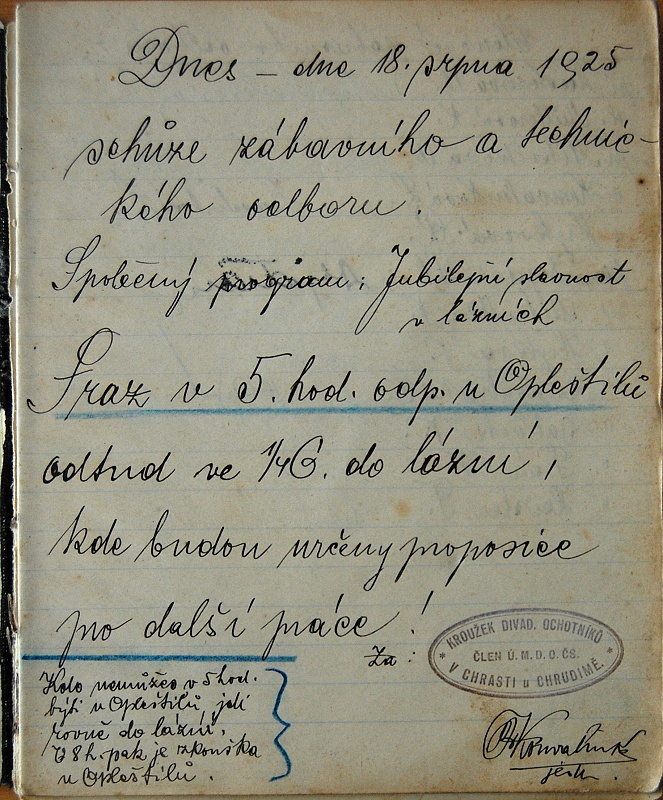 Dnes – dne 18. srpna 1925
schůze zábavního a technic-
kého odboru.
Společný program: Jubilejní slavnost
v lázních
Sraz v 5. hod. odp. u Opleštilů
odtud ve 1/4 6. do lázní,
kde budou určeny proposice
pro další práce!
Za:
KROUŽEK DIVAD. OCHOTNÍKŮ
ČLEN Ú. M. D. O. ČS.
V CHRASTI u CHRUDIMĚ.
Kdo nemůžeš v 5 hod.
býti u Opleštilů, jdi
rovně do lázní.
V 8 h. pak je zkouška
u Opleštilů.
jedn.